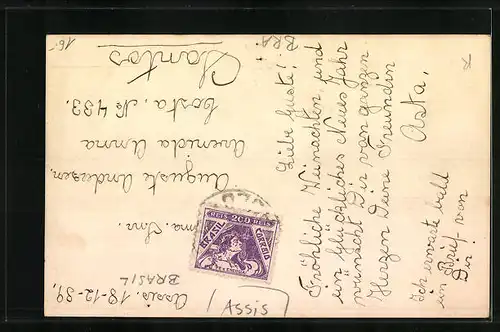 Assis. 18-12-39,
BRASIL
Snr.
Auguste Andersen,
Avenida Anna
Costa, No 433.
Santos
16.-
BRA.
Liebe Guste!
Fröhliche Weinachten und
ein Glückliches Neues Jahr
wünscht Dir von ganzen
Herzen Deine Freundin
Asta.
Ich erwarte bald
ein Brief von
Dir!
REIS 200 REIS
BRASIL CORREIO
Assis